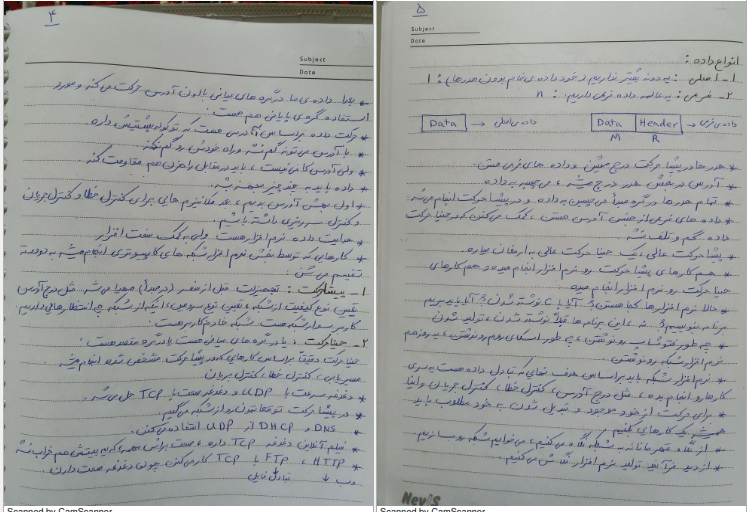 ۴
Subject
Date
* داده ی ما در گره های میانی با اون آدرس حرکت می کنه و مورد
استفاده گره ی پایانی هم هست.
* حرکت داده براساس آدرس هست که تو کوله پشتیش داره.
* با آدرس می تونه گم نشه و راه خودش رو گم نکنه.
ولی آدرس کافی نیست، باید در مقابل راهزن هم مقاومت کنه
* داده باید به چند چیز مجهز بشه.
* اول بهش آدرس بدیم، بعد مکانیزم های برای کنترل خطا و کنترل جریان
و کنترل سرریزی داشته باشیم.
* هدایت داده نرم افزار هست ولی به کمک سخت افزار
* کارهای که توسط بخش نرم افزار شبکه های کامپیوتری انجام میشه به دو دسته
تقسیم می شن:
۱- پیشا حرکت: تجهیزات قبل از سفر (در مبدأ) مهیا می شه. مثل درج آدرس
تعیین نوع کیفیت از شبکه، تعیین نوع سرویس، اینکه از شبکه چه انتظارهای داریم
کاربر سوار شبکه هست. شبکه خادم کاربر هست.
۲- حینا حرکت: یا در گره های میانی هست یا در گره مقصد هست.
حینا حرکت دقیقاً براساس کارهای که در پیشا حرکت مشخص شده انجام میشه.
مسیریابی، کنترل خطا، کنترل جریان
* دغدغه سرعت با UDP و دغدغه صحت با TCP حل می شه.
* در پیشا حرکت توقعاتمون رو از شبکه می گیم.
* DNS و DHCP از UDP استفاده می کنن.
* فیلم آنلاین دغدغه TCP داره، صحت براش مهمه،
* HTTP، FTP با TCP کار می کنن چون دغدغه صحت دارن.
وب تبادل فایل
Scanned by CamScanner
۵
Subject
Date
انواع داده:
۱- اصلی: یه دونه بیشتر نداریم (خود داده ی خام بدون هدرها): 1
۲- فرعی: یه عالمه داده فرعی داریم: n
Data → داده ی اصلی Data Header → داده ی فرعی
M R
* هدرها در پیشا حرکت درج میشن و داده های فرعی هستن.
* آدرس در بخش هدر درج میشه، می چسبه به داده
* تمام هدرها در گره مبدأ می چسبن به داده و در پیشا حرکت انجام می شه.
* داده های فرعی از جنس آدرس هستن، کمک می کنن که در حینا حرکت
داده گم و تلف نشه
* پیشا حرکت عالی، یک حینا حرکت عالی به ارمغان میاره.
* هم کارهای پیشا حرکت رو نرم افزار انجام میده و هم کارهای
حینا حرکت رو نرم افزار انجام میده
* حالا نرم افزارها کجا هستن؟ آیا با نوشته شدن؟ آیا باید بریم
برنامه بنویسیم؟ نه، این برنامه ها قبلاً نوشته شدن، تولید شدن
* چه طور فتوشاپ رو نوشتن، چه طور روم رو نوشتن، یه روزم هم
نرم افزار شبکه رو نوشتن
* نرم افزار شبکه باید براساس هدف نهایی که تبادل داده هست یه سری
کارها رو انجام بده، مثل درج آدرس، کنترل خطا، کنترل جریان و
* برای حرکت از خود موجود و تبدیل شدن به خود مطلوب باید
یک کارهای کنیم
* از نگاه به شبکه نگاه می کنیم، می خوایم شبکه رو بسازیم.
* از دید فرآیند تولید نرم افزار نگاش می کنیم.
Nevis
Scanned by CamScanner